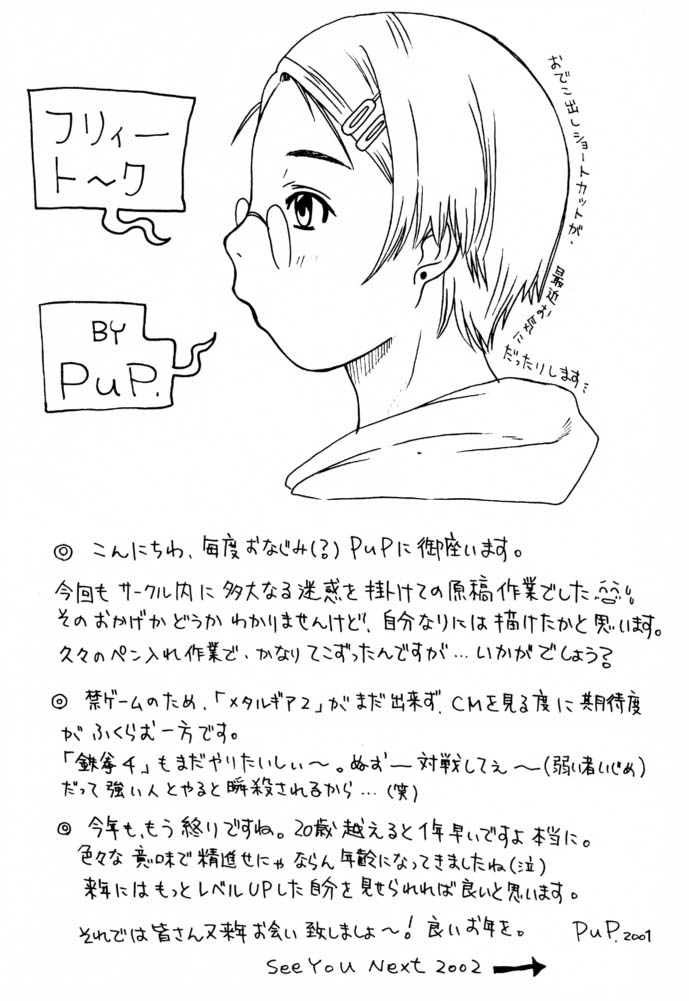 フリィー
ト〜ク
BY
PuP.
おでこ出しショートカットが、
最近お
気に
だったりします…
◎ こんにちわ、毎度おなじみ(?)PuPに御座います。
今回も サークル内に 多大なる迷惑を 掛けての原稿作業でした
そのおかげか どうか わかりませんけど、自分なりには 描けたかと思います。
久々のペン入れ作業で、かなり てこずったんですが… いかがでしょう?
◎ 禁ゲームのため、「メタルギア2」がまだ出来ず、CMを見る度に 期待度
が ふくらむ一方です。
「鉄拳4」もまだやりたいしぃ〜。ぬおー対戦してえ〜(弱い者いじめ)
だって強い人とやると瞬殺されるから…(笑)
◎ 今年も、もう終りですね。20歳越えると1年早いですよ本当に。
色々な意味で精進せにゃ ならん年齢になってきましたね(泣)
来年にはもっとレベルUPした自分を見せられれば良いと思います。
それでは皆さん又来年お会い致しましょ〜! 良いお年を。 PuP.2001
See You Next 2002 →